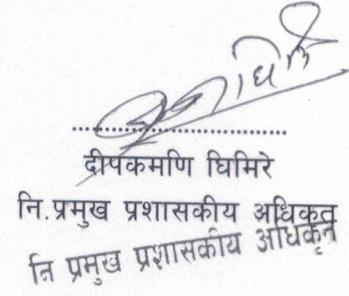 दीपकमणि घिमिरे
नि.प्रमुख प्रशासकीय अधिकृत
नि प्रमुख प्रशासकीय अधिकृत